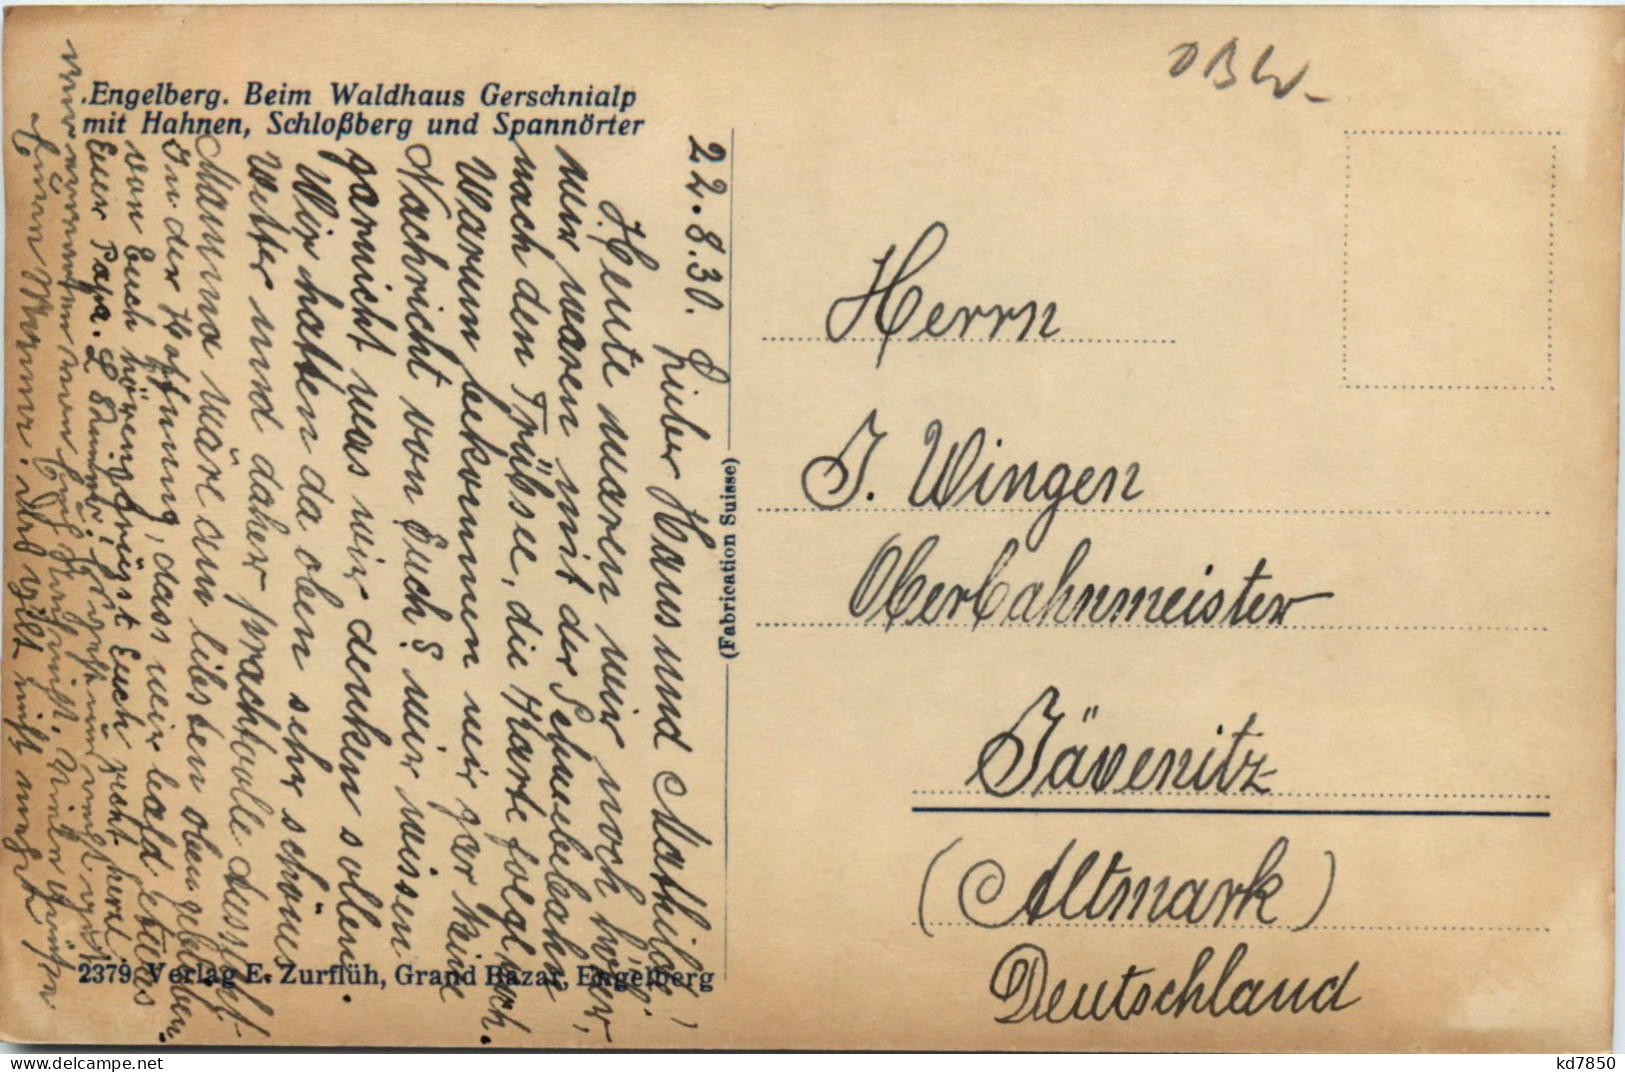 .Engelberg. Beim Waldhaus Gerschnialp
mit Hahnen, Schloßberg und Spannörter
22.8.30.
Lieber Hans und Mathilde!
Heute waren wir noch höher,
wir waren mit der Schwebebahn
nach den Trübsee, die Karte folgt noch.
Warum bekommen wir gar keine
Nachricht von Euch? wir wissen
garnicht was wir denken sollen.
Wir hatten da oben sehr schönes
Wetter und daher prachtvolle Aussicht.
Mamma wäre am liebsten oben geblieben.
In der Hoffnung, dass wir bald etwas
von Euch hören, grüsst Euch recht herzl.
Euer Papa.
(Fabrication Suisse)
2379 Verlag E. Zurflüh, Grand Bazar, Engelberg
OBW-
Herrn
J. Wingen
Oberbahnmeister
Jävenitz
(Altmark)
Deutschland
kd7850